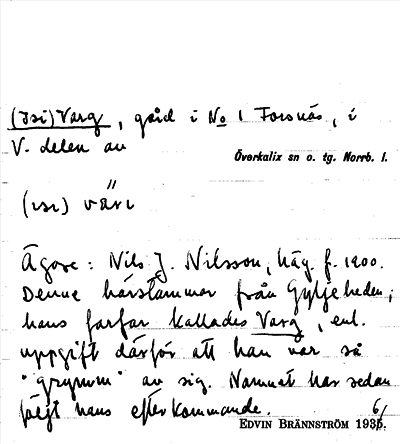 (Isi) Varg, gård i No 1 Forsnäs, i
V. delen av
Överkalix sn o. tg. Norrb. l.
Ägare: Nils J. Nilsson, häg. f. 1900.
Denne härstammar från Gyljeheden;
hans farfar kallades Varg, enl.
uppgift därför att han var så
"grymm" av sig. Namnet har sedan
följt hans efterkommande.
EDVIN BRÄNNSTRÖM 1935.